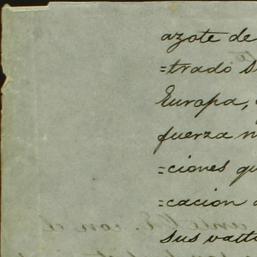 azote de
=trado s
Europa,
fuerza n
=ciones qu
=cacion
sus vall